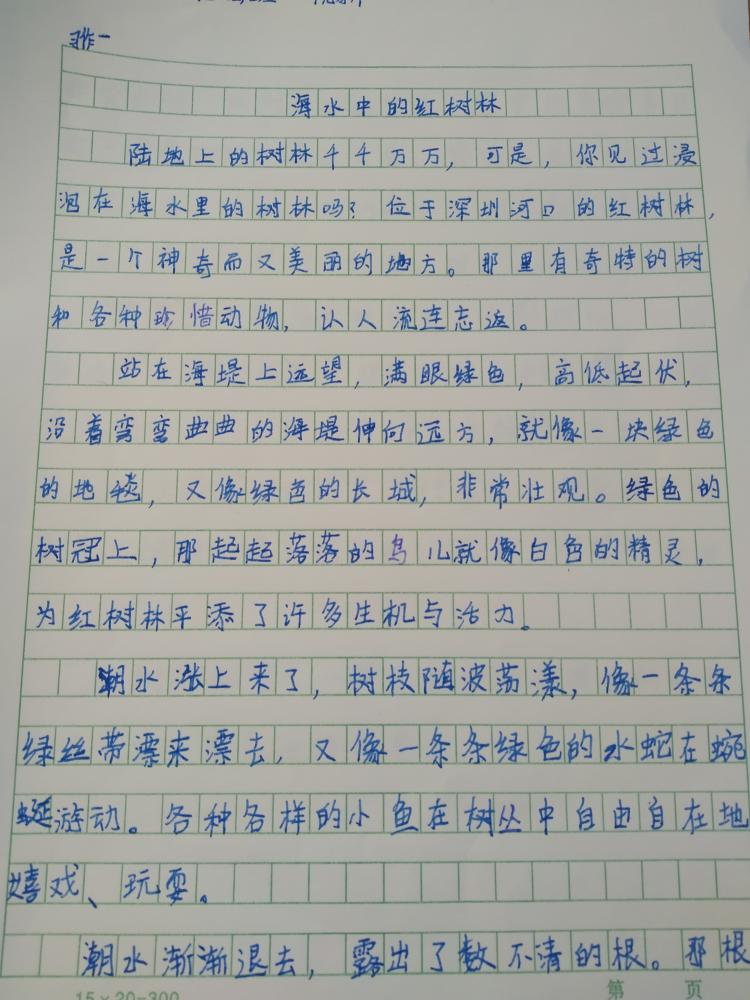 习作一
海水中的红树林
陆地上的树林千千万万，可是，你见过浸
泡在海水里的树林吗？位于深圳河口的红树林，
是一个神奇而又美丽的地方。那里有奇特的树
和各种珍惜动物，认人流连志返。
站在海堤上远望，满眼绿色，高低起伏，
沿着弯弯曲曲的海堤伸向远方，就像一块绿色
的地毯，又像绿色的长城，非常壮观。绿色的
树冠上，那起起落落的鸟儿就像白色的精灵，
为红树林平添了许多生机与活力。
潮水涨上来了，树枝随波荡漾，像一条条
绿丝带漂来漂去，又像一条条绿色的水蛇在蜿
蜒游动。各种各样的小鱼在树丛中自由自在地
嬉戏、玩耍。
潮水渐渐退去，露出了数不清的根。那根
15×20=300
第 页